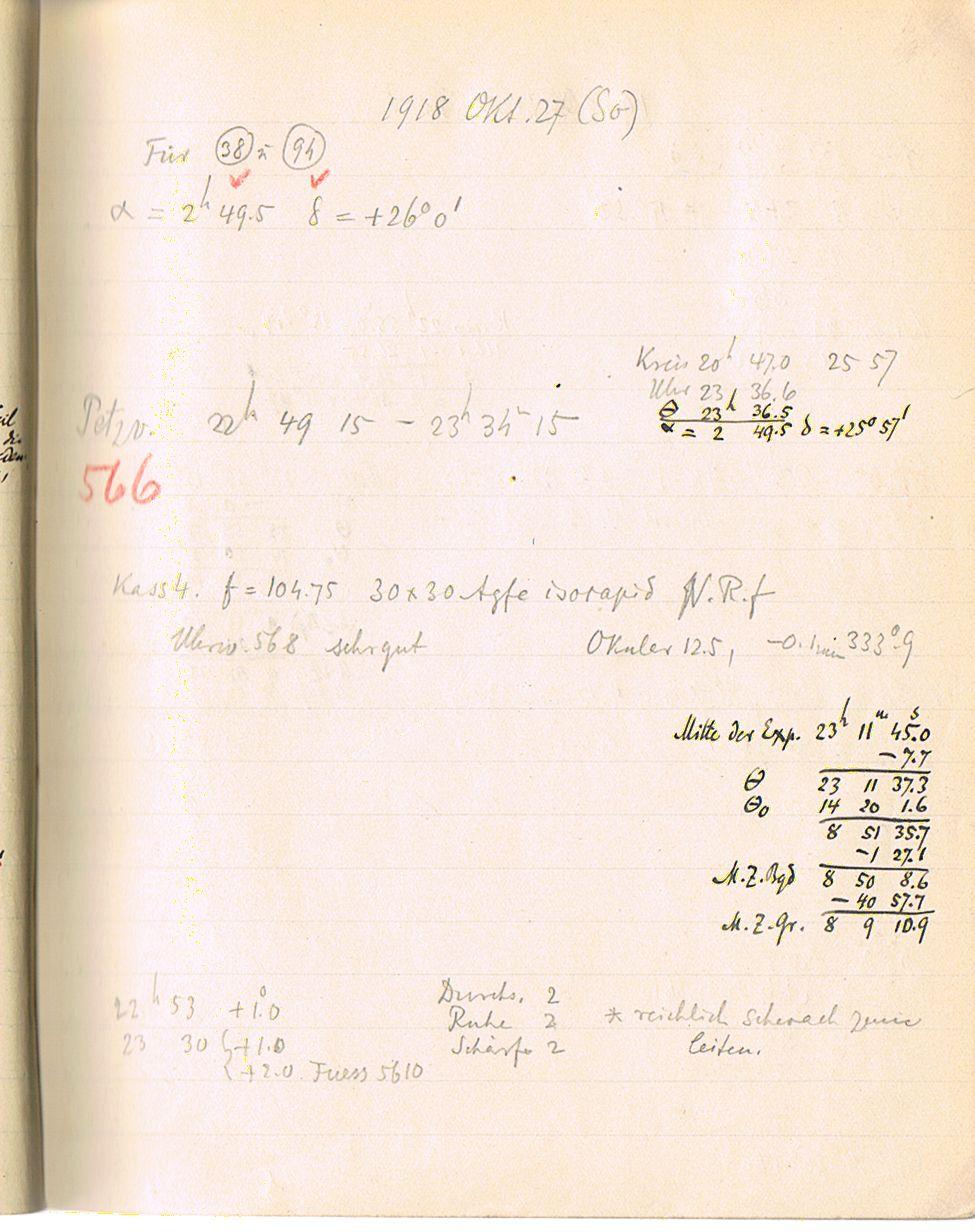 1918 Okt. 27 (So)
Für 38 = 94
α = 2h 49.5 δ = +26° 0'
Kreis 20h 47.0 25 57
Uhr 23 36.6
Θ 23h 36.5
α = 2 49.5 δ = +25° 57'
Petzv. 22h 49 15 – 23h 34 15
566
Kass 4. f = 104.75 30×30 Agfa isorapid N.R.f
Uhrw. 568 sehr gut Okular 12.5, 333°.9
Mitte der Exp. 23h 11m 45.0s
– 7.7
Θ 23 11 37.3
Θ0 14 20 1.6
8 51 35.7
–1 27.1
M.Z.Bgd 8 50 8.6
– 40 57.7
M.Z.Gr. 8 9 10.9
22h 53 +1.0°
23 30 {+1.0
{+2.0 Fuess 5610
Durchs. 2
Ruhe 2
Schärfe 2
* reichlich schwach zum
leiten.